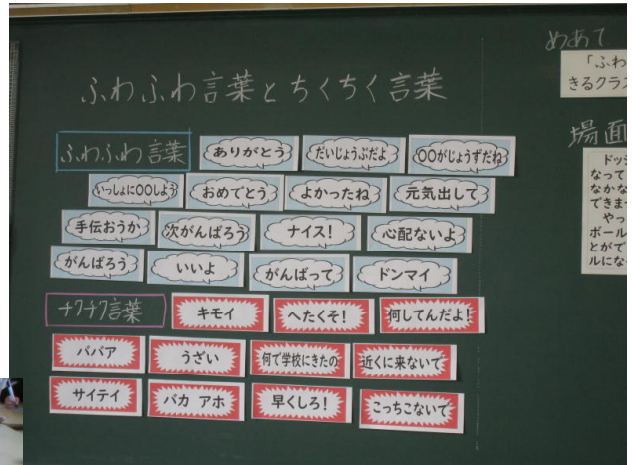 ふわふわ言葉とちくちく言葉
ふわふわ言葉 ありがとう だいじょうぶだよ 〇〇がじょうずだね
いっしょに〇〇しよう おめでとう よかったね 元気出して
手伝おうか 次がんばろう ナイス! 心配ないよ
がんばろう いいよ がんばって ドンマイ
チクチク言葉 キモイ へたくそ! 何してんだよ!
ババア うざい 何で学校にきたの 近くに来ないで
サイテイ バカ アホ 早くしろ! こっちこないで
めあて
「ふわ
きるクラス
場面
ドッジ
なって
なかな
できま
やっ
ボール
とがで
ルにな